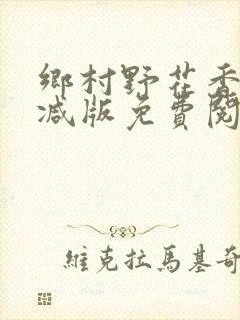 鄉村野花香
减版免費閱
維克拉馬基奇